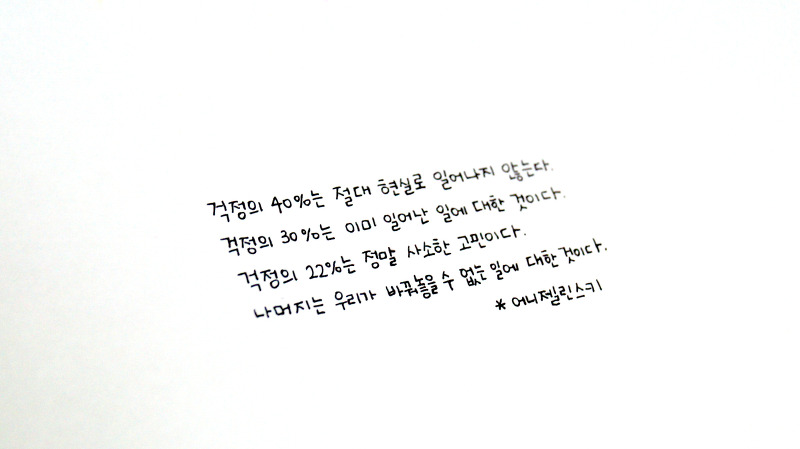 걱정의 40%는 절대 현실로 일어나지 않는다.
걱정의 30%는 이미 일어난 일에 대한 것이다.
걱정의 22%는 정말 사소한 고민이다.
나머지는 우리가 바꿔놓을 수 없는 일에 대한 것이다.
* 어니젤린스키